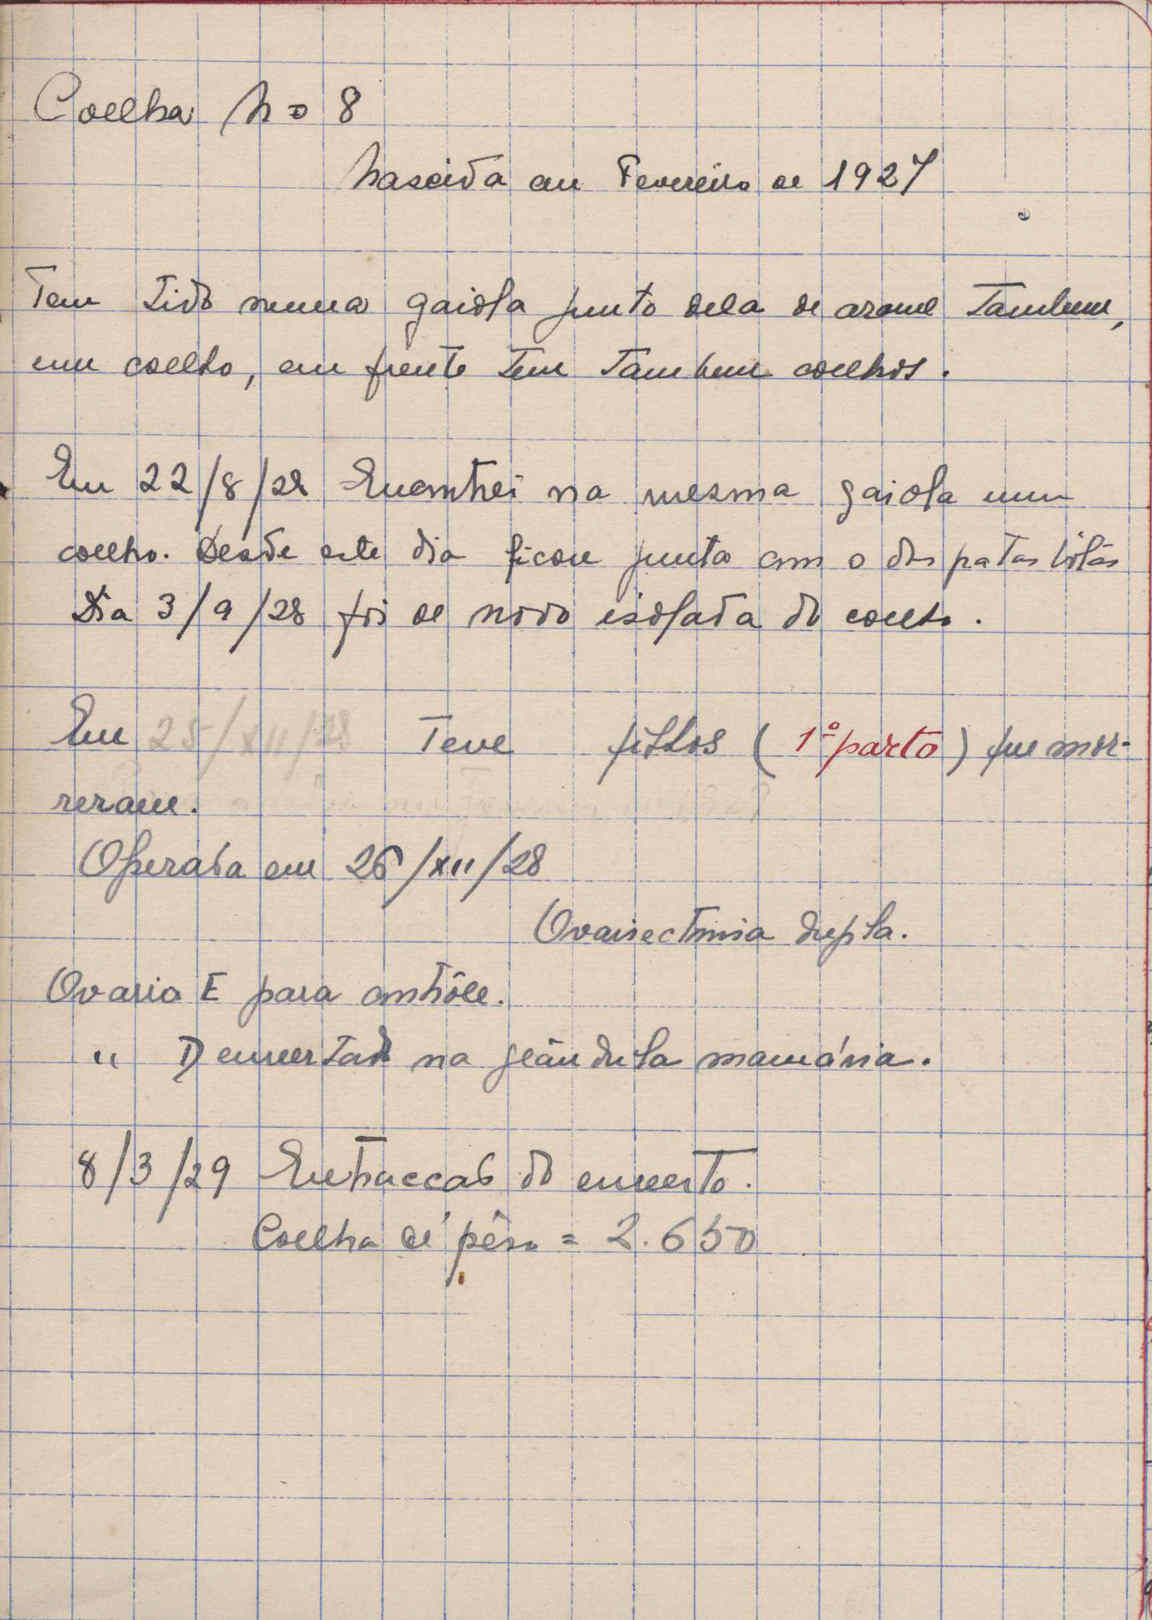 Coelha No 8
Nascida em Fevereiro de 1927
Tem tido numa gaiola junto dela de arame tambem,
um coelho, em frente tem tambem coelhos.
Em 22/8/28 Encontrei na mesma gaiola um
coelho. Desde este dia ficou junta com o das patas
Dia 3/9/28 foi de novo isolada do coelho.
Em 25/XII/28 Teve filhos (1º parto) que mor-
reram.
Operada em 26/XII/28
Ovariectomia dupla.
Ovario E para contrôle.
" D enxertado na glândula mamária.
8/3/29 Extraccão do enxerto.
Coelha de pêso = 2.650